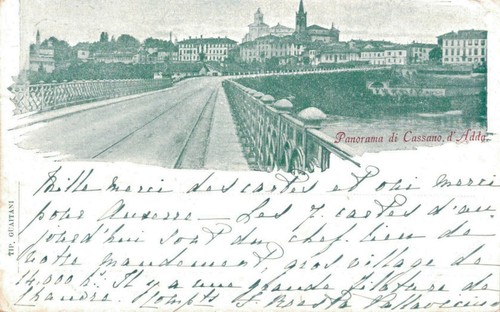 Panorama di Cassano d'Adda
TIP. GUAITANI
Mille merci des cartes et oui merci
pour Auxerre - Les 7 cartes d'au
jourd'hui sont du chef lieu de
notre mandement, gros village de
h. Il y a une grande filature de
chanvre.